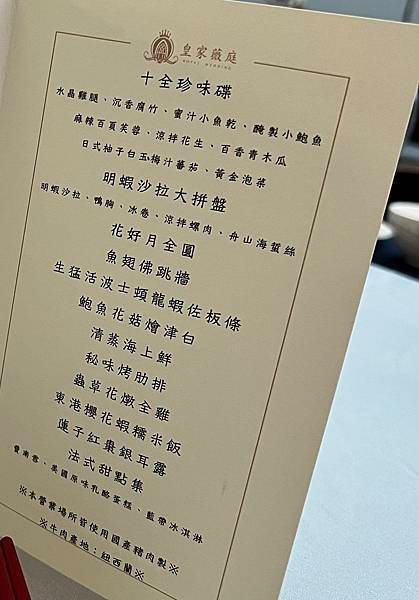 皇家薇庭
ROYAL WEDDING
十全珍味碟
水晶雞腿、沉香腐竹、蜜汁小魚乾、醃製小鮑魚
麻辣百頁芙蓉、涼拌花生、百香青木瓜
日式柚子白玉梅汁蕃茄、黃金泡菜
明蝦沙拉大拼盤
明蝦沙拉、鴨胸、冰卷、涼拌螺肉、舟山海蜇絲
花好月全圓
魚翅佛跳牆
生猛活波士頓龍蝦佐板條
鮑魚花菇燴津白
清蒸海上鮮
秘味烤肋排
蟲草花燉全雞
東港櫻花蝦糯米飯
蓮子紅棗銀耳露
法式甜點集
費南雪、美國原味乳酪蛋糕、藍帶冰淇淋
※本營業場所皆使用國產豬肉製※
※牛肉產地：紐西蘭※